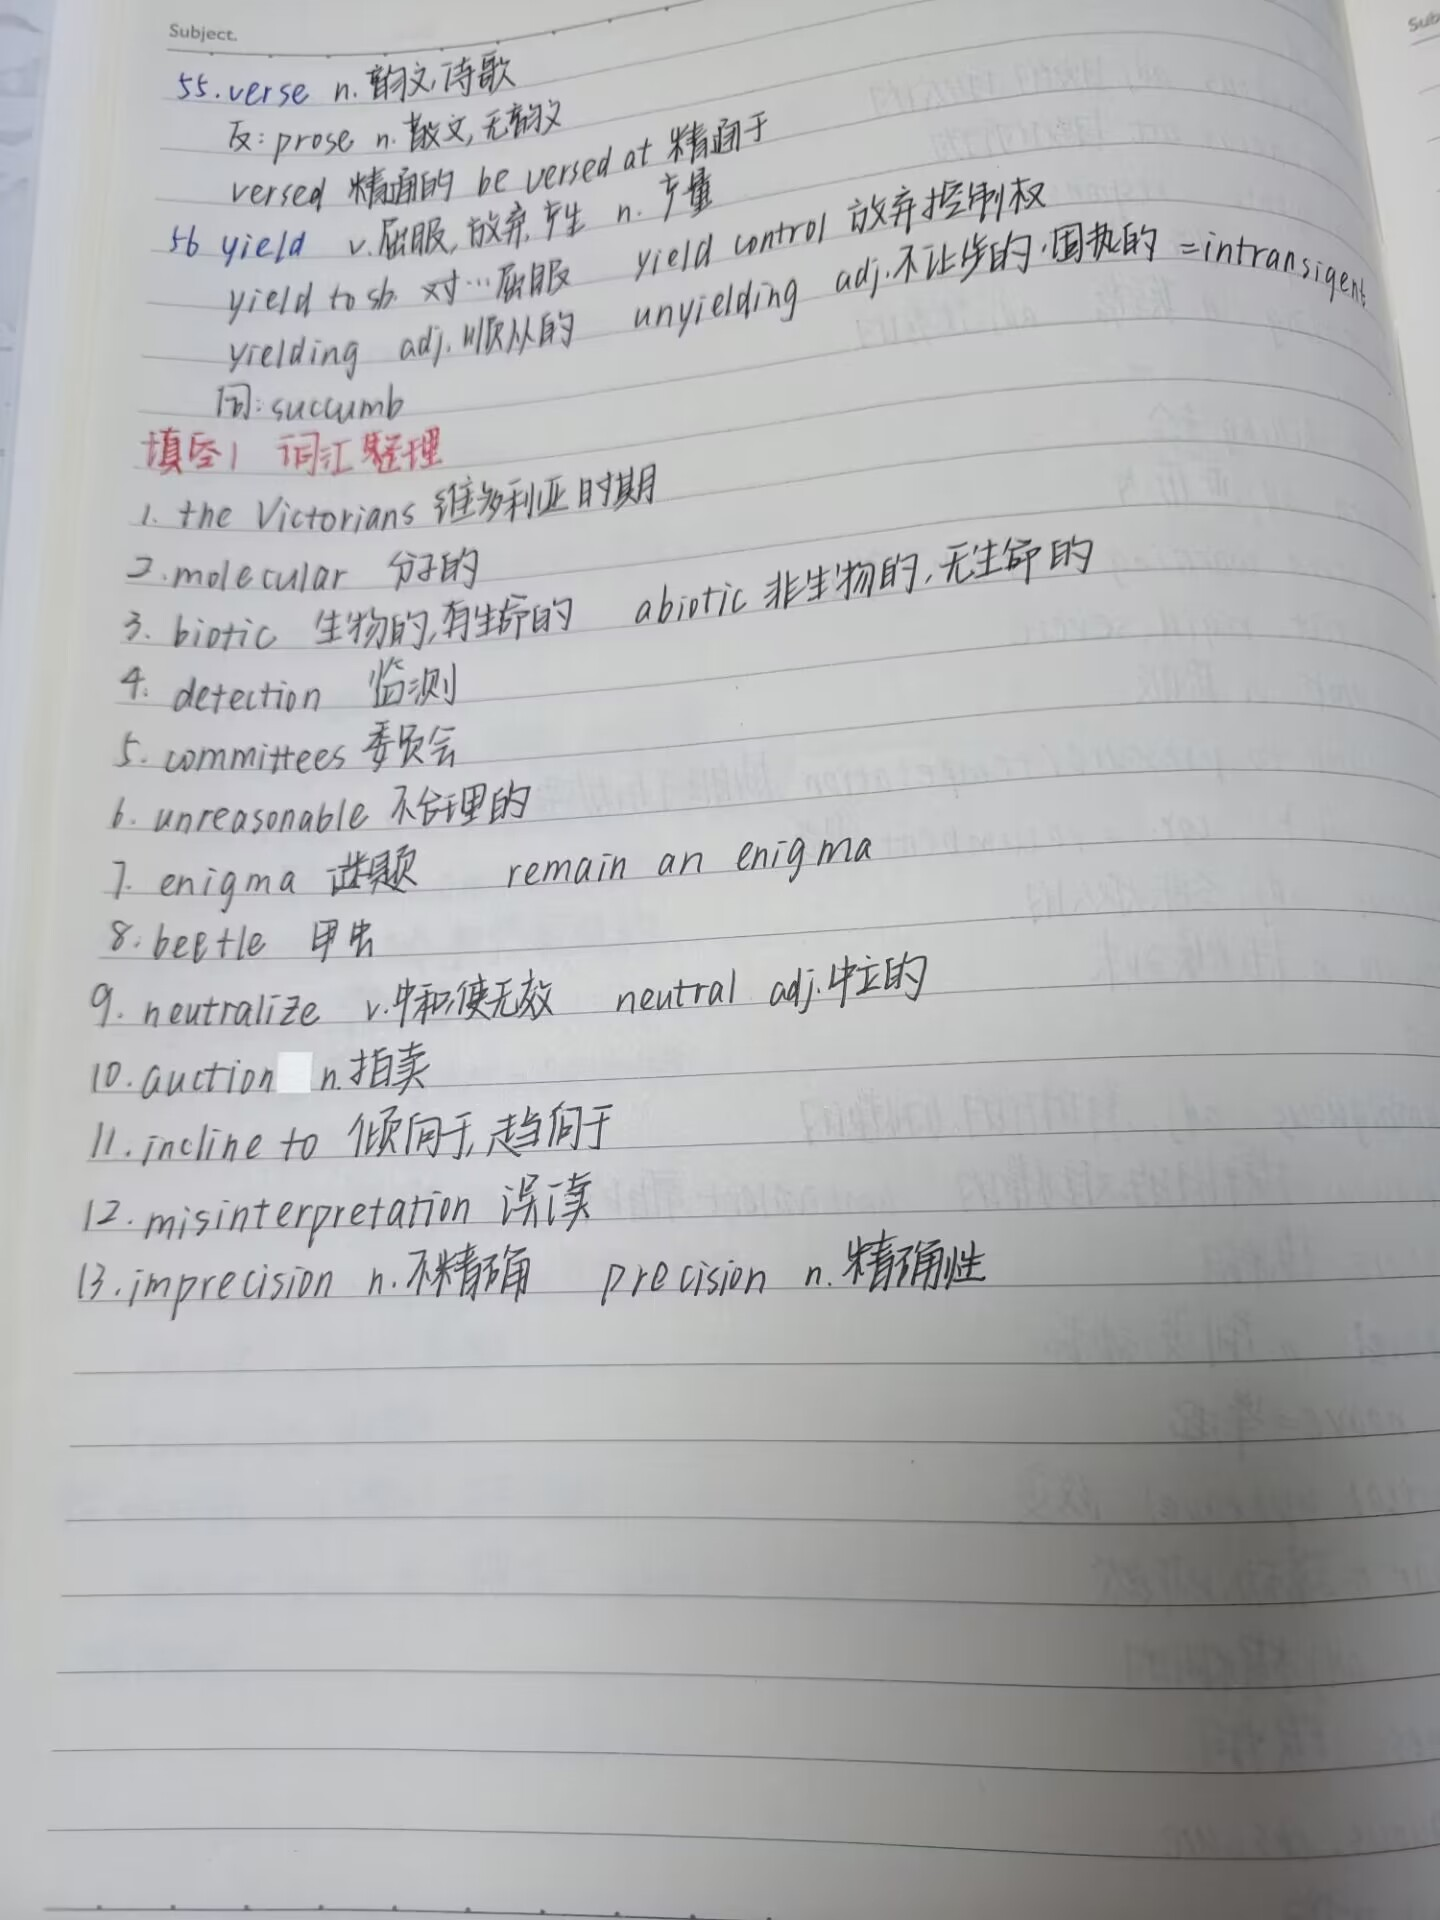 Subject.
55.verse n.韵文,诗歌
反:prose n.散文,无韵文
versed 精通的 be versed at 精通于
56 yield v.屈服,放弃,产生 n.产量
yield to sb. 对…屈服 yield control 放弃控制权
yielding adj.顺从的 unyielding adj.不让步的,固执的 =intransigent
同:succumb
填空1 词汇整理
1. the Victorians 维多利亚时期
2.molecular 分子的
3. biotic 生物的,有生命的 abiotic 非生物的,无生命的
4. detection 监测
5. committees 委员会
6. unreasonable 不合理的
7. enigma 谜题 remain an enigma
8.beetle 甲虫
9. neutralize v.中和,使无效 neutral adj.中立的
10.auction n.拍卖
11.incline to 倾向于,趋向于
12.misinterpretation 误读
13.imprecision n.不精确 precision n.精确性